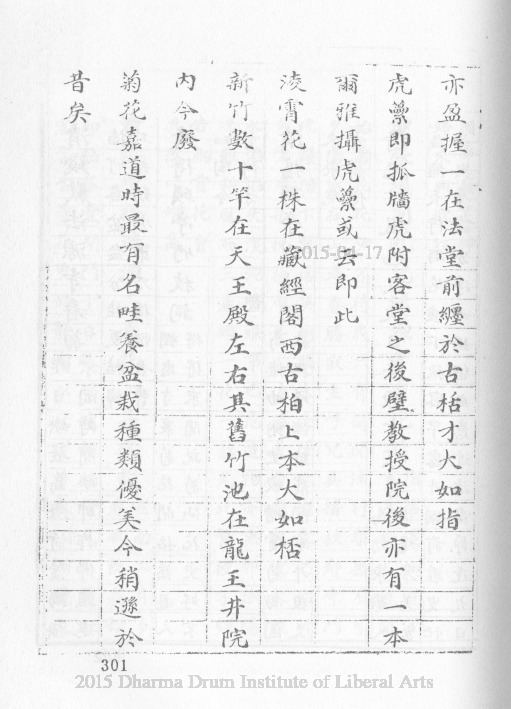 亦盈握一在法堂前纏於古栝才大如指
虎蘽即抓牆虎附客堂之後壁教授院後亦有一本
爾雅攝虎蘽或云即此
淩霄花一株在藏經閣西古柏上本大如栝
新竹數十竿在天王殿左右其舊竹池在龍王井院
內今廢
菊花嘉道時最有名畦養盆栽種類優美今稍遜於
昔矣
301
2015-04-17
2015 Dharma Drum Institute of Liberal Arts